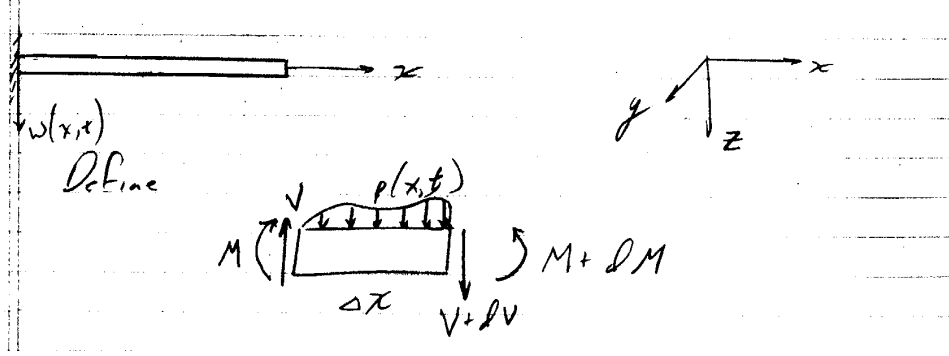 x
x
y
z
w(x,t)
Define
p(x,t)
V
M
M + dM
Δx
V + dV